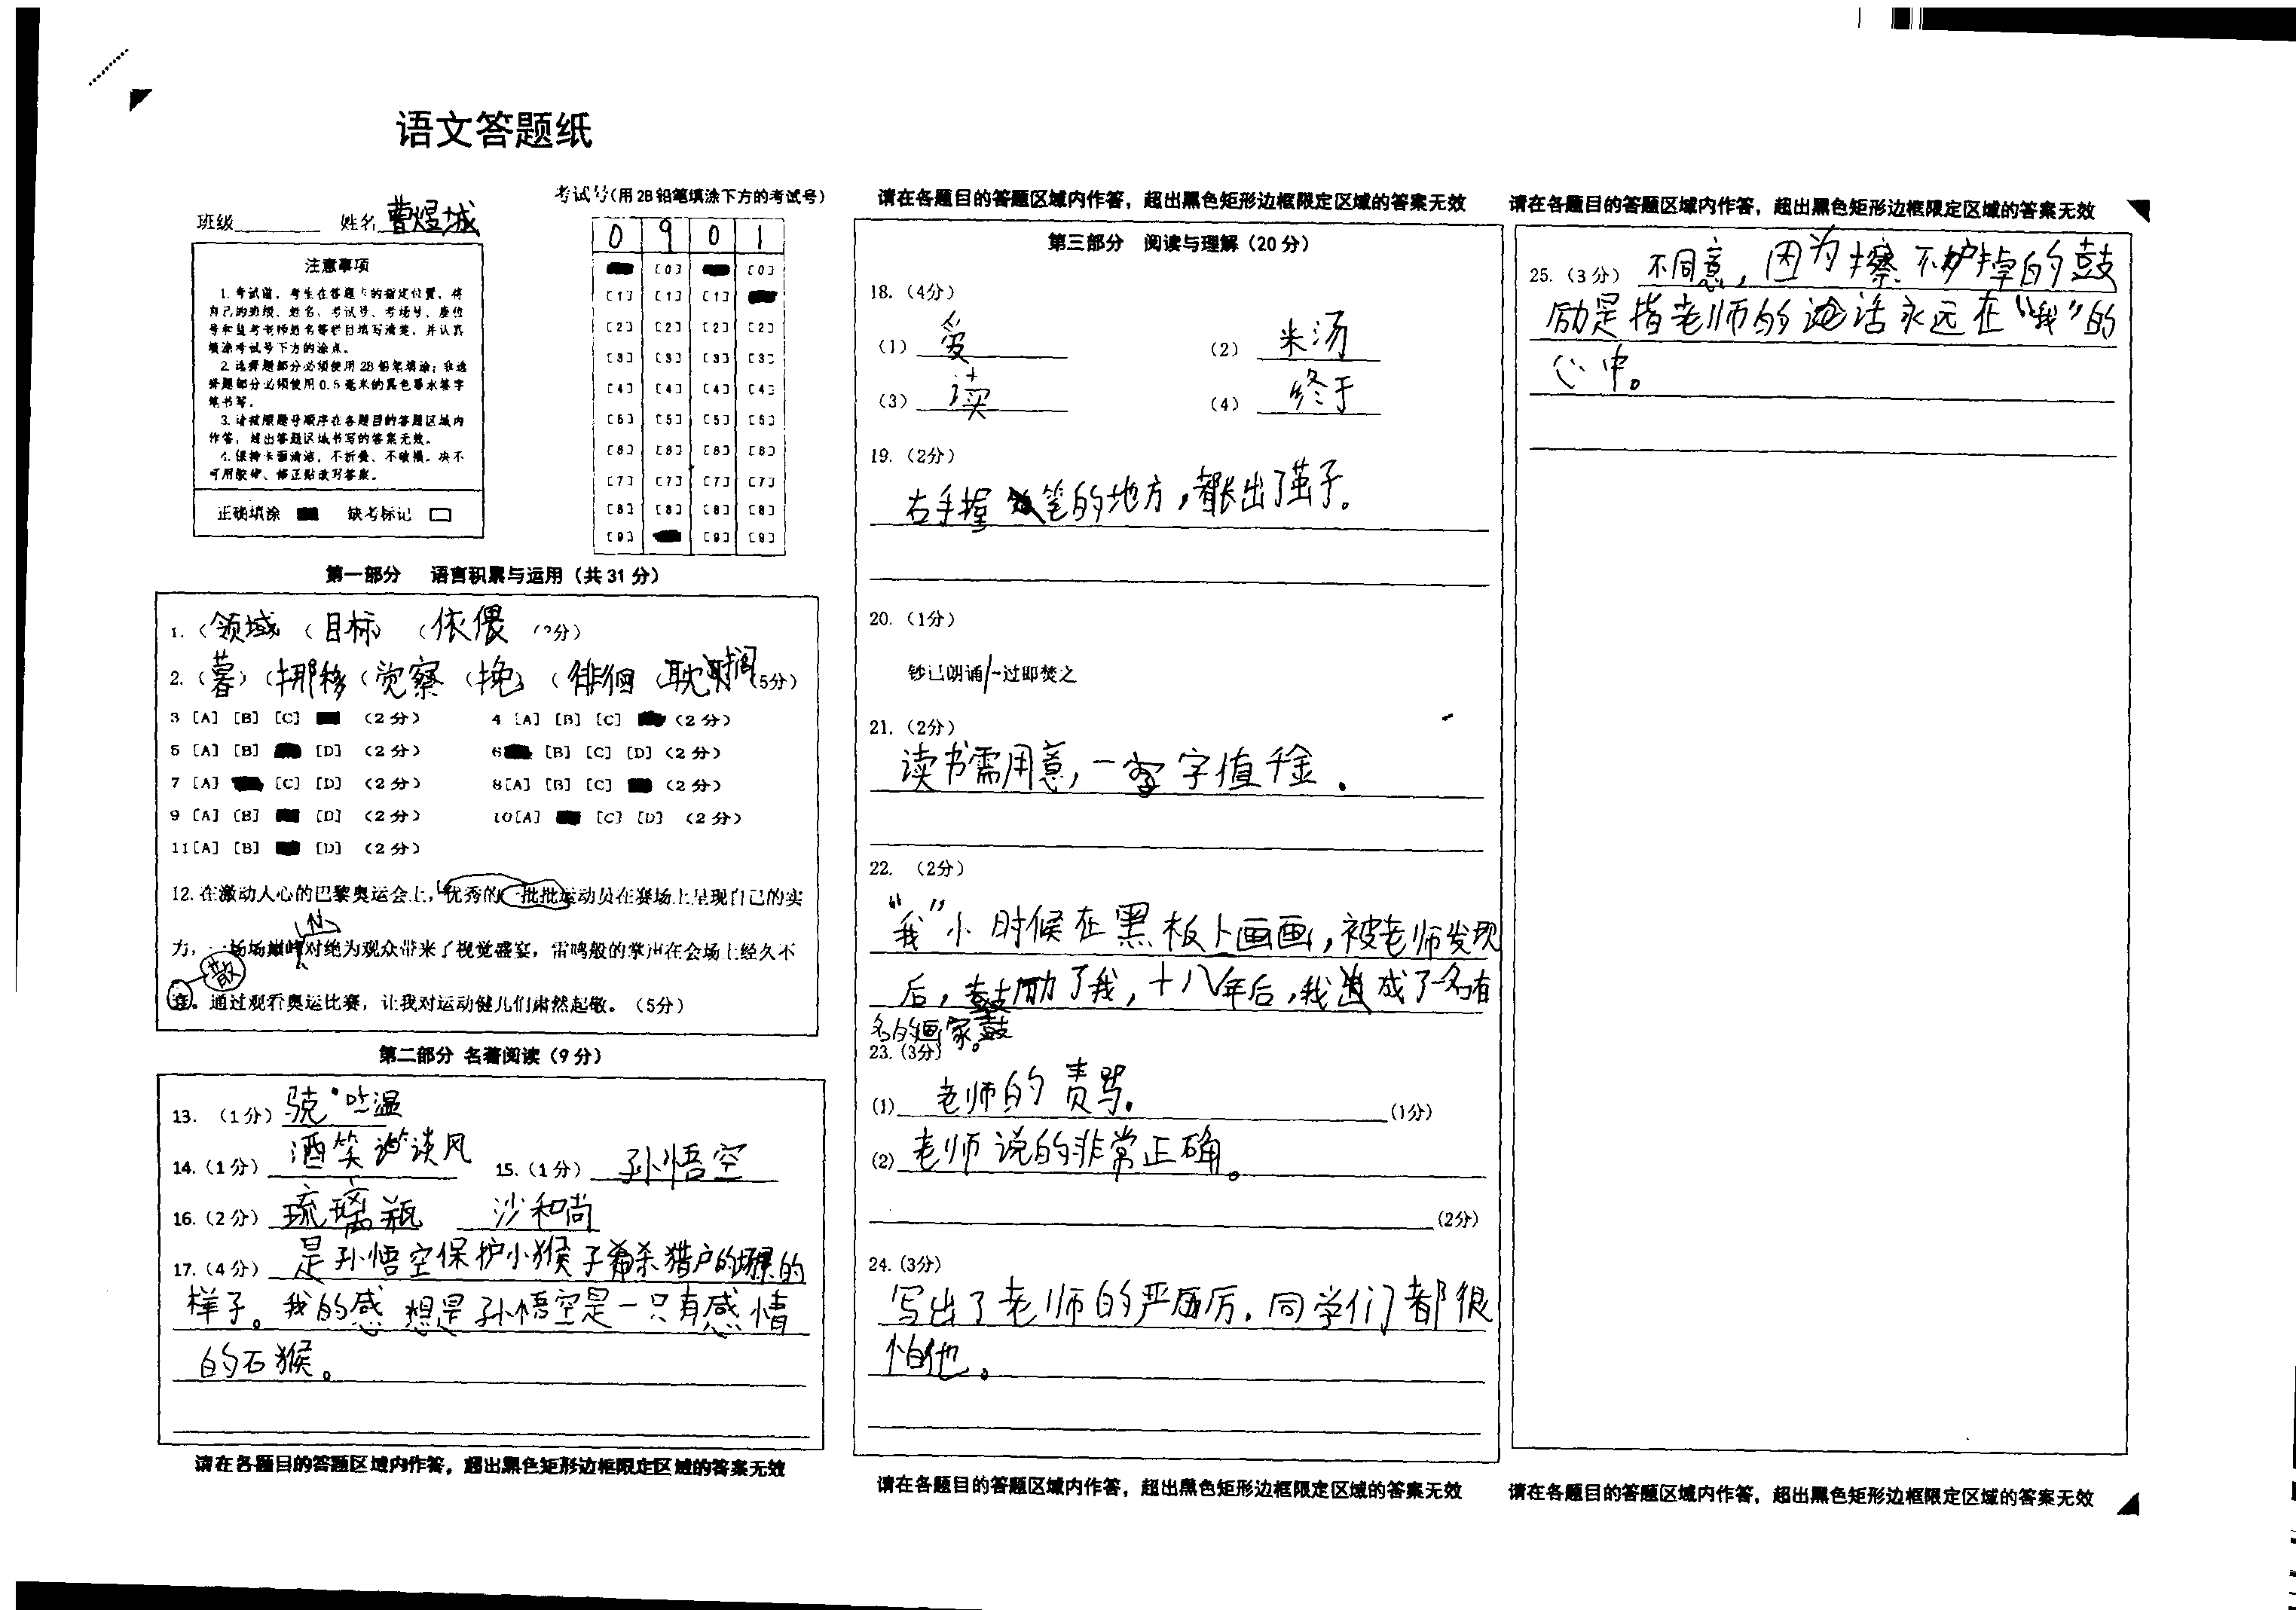 语文答题纸
班级 姓名 曹煜城
考试号(用2B铅笔填涂下方的考试号)
0 9 0 1
[0] [0]
[1] [1] [1]
[2] [2] [2] [2]
[3] [3] [3] [3]
[4] [4] [4] [4]
[5] [5] [5] [5]
[6] [6] [6] [6]
[7] [7] [7] [7]
[8] [8] [8] [8]
[9] [9] [9]
注意事项
1. 考试前，考生在答题卡的指定位置，将
自己的班级、姓名、考试号、考场号、座位
号和监考老师姓名等栏目填写清楚，并认真
填涂考试号下方的涂点。
2. 选择题部分必须使用2B铅笔填涂；非选
择题部分必须使用0.5毫米的黑色墨水签字
笔书写。
3. 请按照题号顺序在各题目的答题区域内
作答，超出答题区域书写的答案无效。
4. 保持卡面清洁，不折叠、不破损。决不
可用胶带、修正贴改写答案。
正确填涂 缺考标记
第一部分 语言积累与运用（共31分）
1.（领域（目标）（依偎（3分）
2.（暮）（挪移（觉察（挽）（徘徊（耽搁（5分）
3 [A] [B] [C] （2分） 4 [A] [B] [C] （2分）
5 [A] [B] [D] （2分） 6 [B] [C] [D]（2分）
7 [A] [C] [D] （2分） 8[A] [B] [C] （2分）
9 [A] [B] [D] （2分） 10[A] [C] [D] （2分）
11[A] [B] [D] （2分）
12. 在激动人心的巴黎奥运会上，优秀的一批批运动员在赛场上呈现自己的实
力，一场场巅峰对绝为观众带来了视觉盛宴，雷鸣般的掌声在会场上经久不
散
。通过观看奥运比赛，让我对运动健儿们肃然起敬。（5分）
第二部分 名著阅读（9分）
13. （1分）
14.（1分）酒笑谈风 15.（1分）孙悟空
16.（2分）琉璃瓶 沙和尚
17.（4分）是孙悟空保护小猴子杀猎户的的
样子。我的感想是孙悟空是一只有感情
的石猴。
请在各题目的答题区域内作答，超出黑色矩形边框限定区域的答案无效
请在各题目的答题区域内作答，超出黑色矩形边框限定区域的答案无效
第三部分 阅读与理解（20分）
18.（4分）
（1）爱 （2）米汤
（3） （4）终于
19.（2分）
右手握笔的地方，都长出了茧子。
20.（1分）
钞已朗诵/一过即焚之
21.（2分）
读书需用意，一字值千金.
22. （2分）
“我”小时候在黑板上画画，被老师发现
后，鼓励了我，十八年后，我成了一名有
名的画家。
23.（3分）
(1) 老师的责骂. (1分)
(2) 老师说的非常正确。
(2分)
24.（3分）
写出了老师的严厉. 同学们都很
怕他。
请在各题目的答题区域内作答，超出黑色矩形边框限定区域的答案无效
请在各题目的答题区域内作答，超出黑色矩形边框限定区域的答案无效
25.（3分）不同意，因为擦不掉的鼓
励是指老师的话永远在“我”的
心中。
请在各题目的答题区域内作答，超出黑色矩形边框限定区域的答案无效